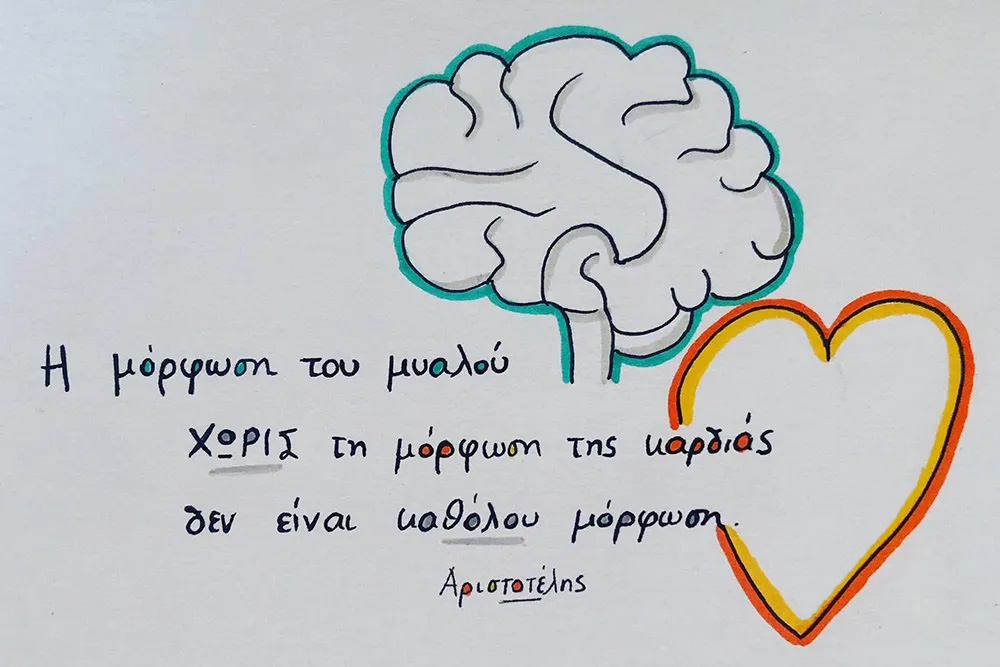 Η μόρφωση του μυαλού
ΧΩΡΙΣ τη μόρφωση της καρδιάς
δεν είναι καθόλου μόρφωση.
Αριστοτέλης